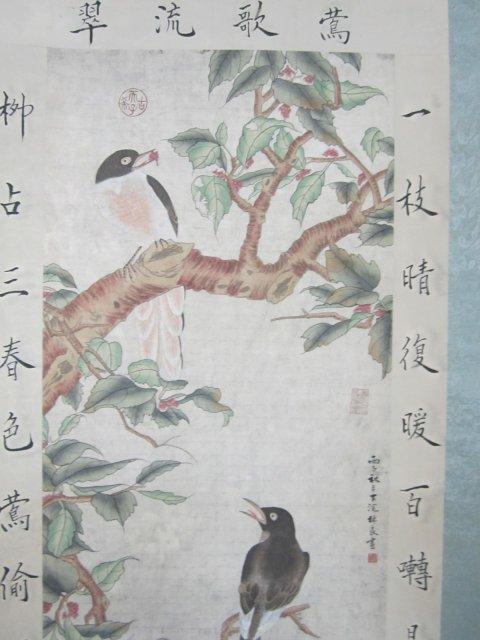 鶯歌流翠
柳占三春色鶯偷
一枝晴復暖百囀
林良畫